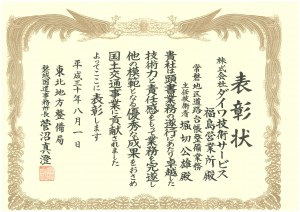 表彰状
株式会社ダイワ技術サービス
福島営業所 殿
常磐地区道路台帳整備業務
主任技術者 堀切公雄 殿
貴社は頭書業務の遂行にあたり卓越した
技術力と責任感をもって業務を完遂し
他の模範となる優秀な成果をおさめ
国土交通事業に貢献されました
よってここに表彰します
平成三十年八月一日
東北地方整備局
磐城国道事務所長 菅沼真澄